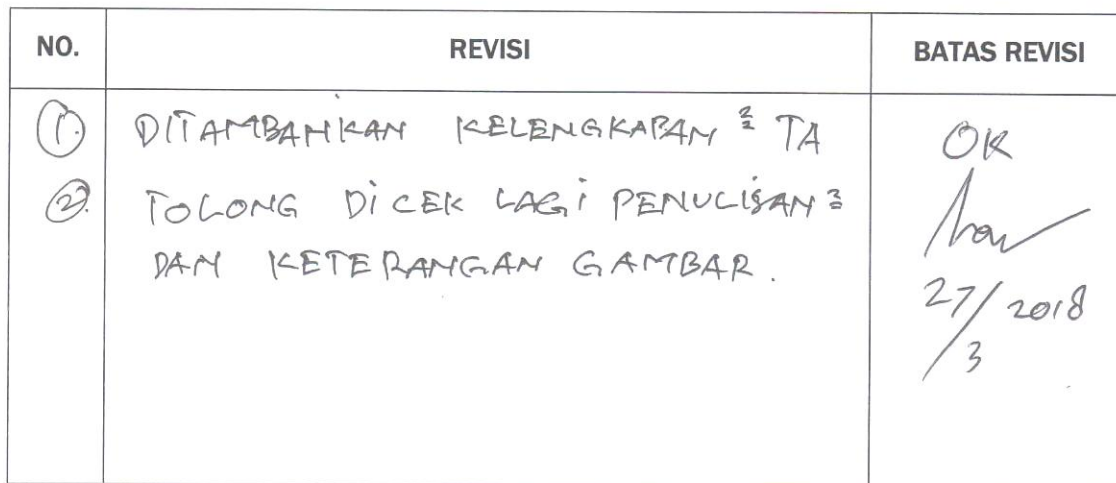 NO. REVISI BATAS REVISI
1. DITAMBAHKAN KELENGKAPAN² TA OK
2. TOLONG DICEK LAGI PENULISAN²
DAN KETERANGAN GAMBAR.
27/3 2018